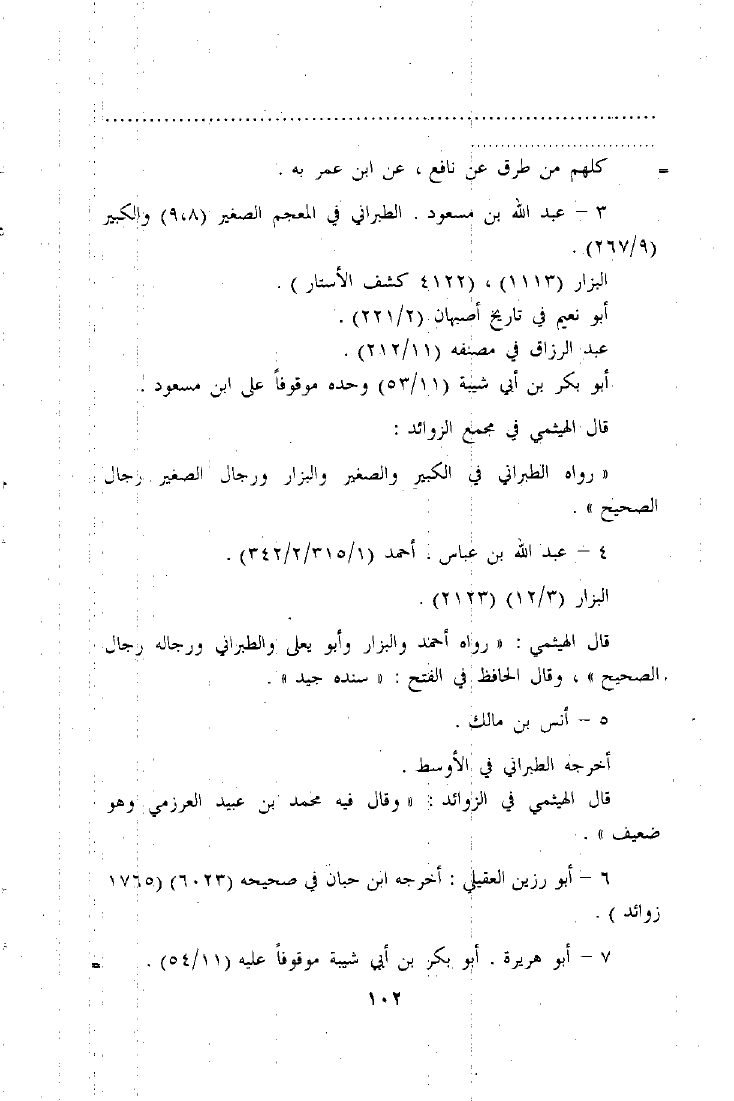 = كلهم من طرق عن نافع ، عن ابن عمر به .
٣ – عبد الله بن مسعود . الطبراني في المعجم الصغير (٩،٨) والكبير
(٢٦٧/٩) .
البزار (١١١٣) ، (٤١٢٢ كشف الأستار ) .
أبو نعيم في تاريخ أصبهان (٢٢١/٢) .
عبد الرزاق في مصنفه (٢١٢/١١) .
أبو بكر بن أبي شيبة (٥٣/١١) وحده موقوفاً على ابن مسعود .
قال الهيثمي في مجمع الزوائد :
« رواه الطبراني في الكبير والصغير والبزار ورجال الصغير رجال
الصحيح » .
٤ – عبد الله بن عباس . أحمد (٣٤٢/٢/٣١٥/١) .
البزار (١٢/٣) (٢١٢٣) .
قال الهيثمي : « رواه أحمد والبزار وأبو يعلى والطبراني ورجاله رجال
الصحيح » ، وقال الحافظ في الفتح : « سنده جيد » .
٥ – أنس بن مالك .
أخرجه الطبراني في الأوسط .
قال الهيثمي في الزوائد : « وقال فيه محمد بن عبيد العرزمي وهو
ضعيف » .
٦ – أبو رزين العقيلي : أخرجه ابن حبان في صحيحه (٦٠٢٣) (١٧٦٥
زوائد ) .
٧ – أبو هريرة . أبو بكر بن أبي شيبة موقوفاً عليه (٥٤/١١) . =
١٠٢